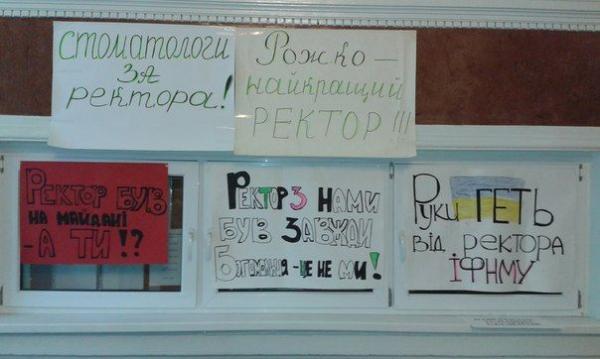 СТОМАТОЛОГИ
ЗА
ректора!
Рожко —
найкращий
РЕКТОР!!!
РЕКТОР БУВ
НА МАЙДАНІ
- А ТИ!?
РЕКТОР З НАМИ
БУВ ЗАВЖДИ
- ЦЕ НЕ МИ!
Руки ГЕТЬ
від ректора
ІФНМУ